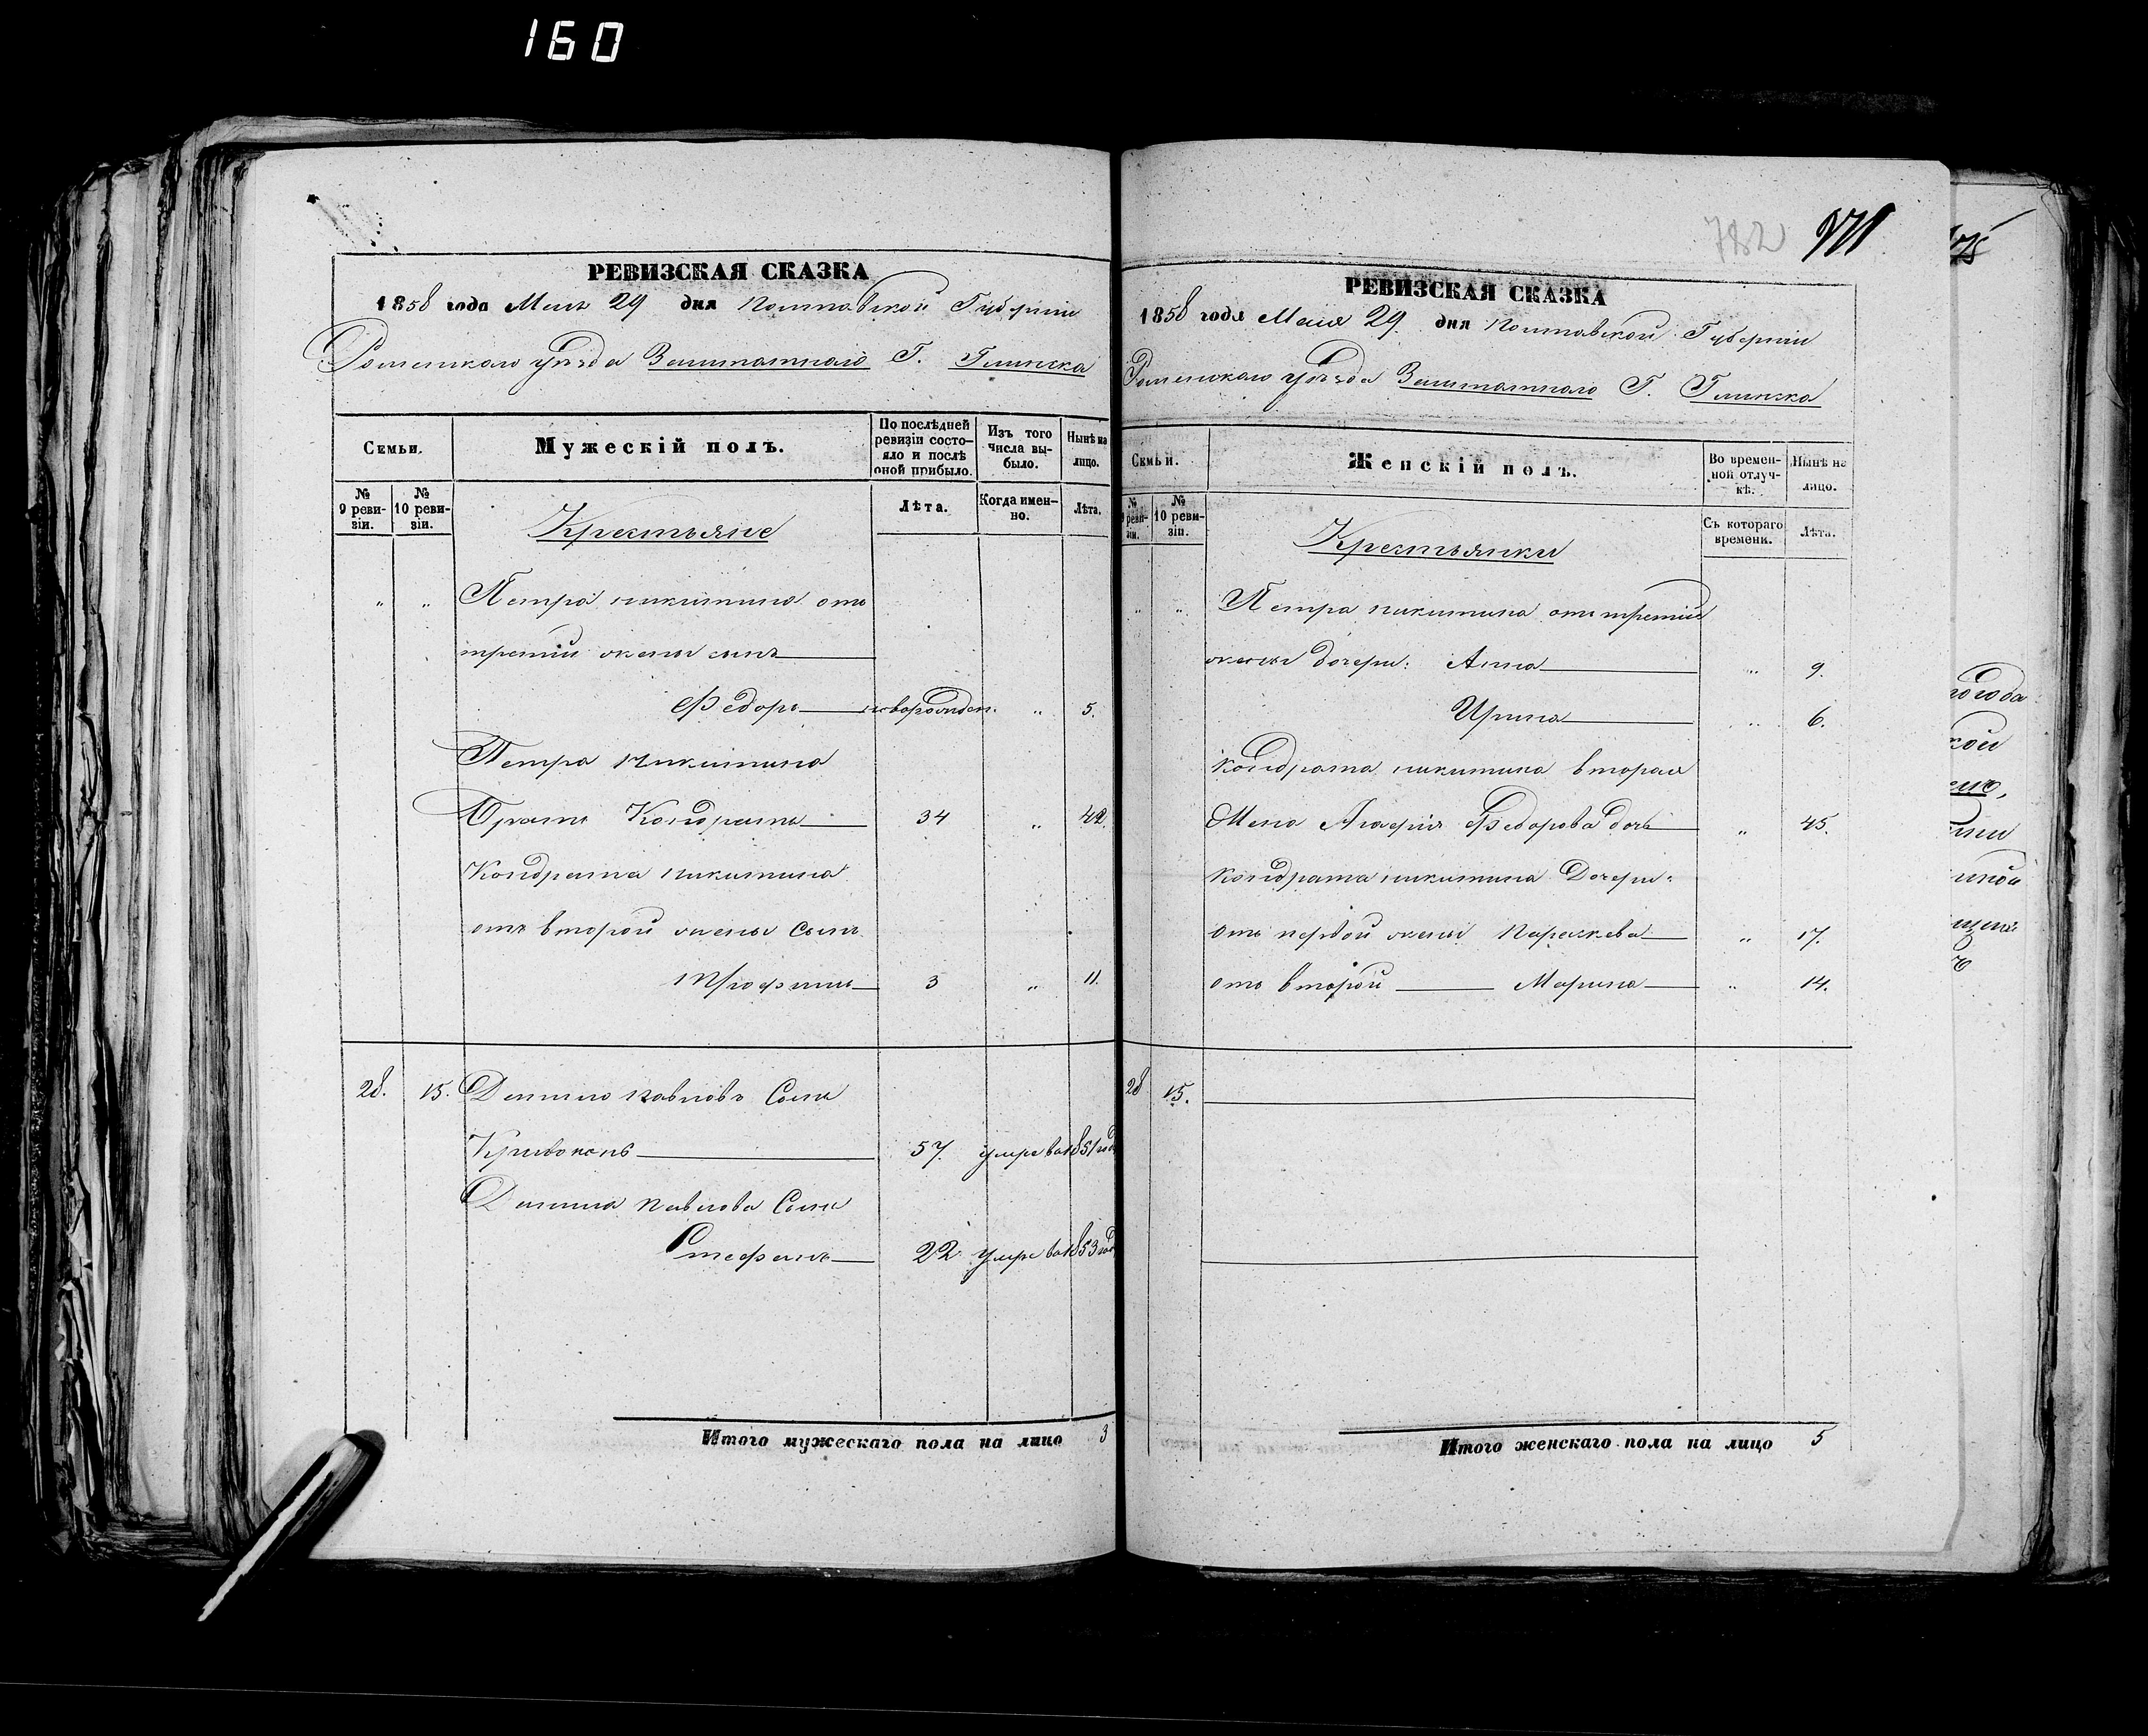 160
РЕВИЗСКАЯ СКАЗКА
1858 года Мая 29 дня Полтавской Губерніи
Роменскаго уѣзда Заштатнаго Г. Глинска
Семьи.
Мужескій полъ.
По послѣдней ревизіи состояло и послѣ оной прибыло.
Изъ того числа выбыло.
Нынѣ на лицо.
№ 9 ревизіи.
№ 10 ревизіи.
Крестьяне
Лѣта.
Когда именно.
Лѣта.
" " Петра Никитина отъ
третий жены сынъ
Федоръ новорожден. " 5.
Петра Никитина
братъ Кондратъ 34 " 42.
Кондрата Никитина
отъ второй жены Сынъ
3 " 11.
28. 15. Данило Павловъ Сынъ
57. умре в 1851 год
Данила Павлова Сынъ
Стефанъ 22. умре в 1853 год
Итого мужескаго пола на лицо 3
782 971
РЕВИЗСКАЯ СКАЗКА
1858 года Мая 29 дня Полтавской Губерніи
Роменскаго уѣзда Заштатнаго Г. Глинска
Семьи.
Женскій полъ.
Во временной отлучкѣ.
Нынѣ на лицо.
№ 9 ревизіи.
№ 10 ревизіи.
Крестьянки
Съ котораго времени.
Лѣта.
" " Петра Никитина отъ третий
жены дочери: Анна " 9.
Ирина " 6.
Кондрата Никитина вторая
Жена Федорова дочь " 45.
Кондрата Никитина Дочери:
отъ первой жены Параскева " 17.
отъ второй Марина " 14.
28 15.
Итого женскаго пола на лицо 5